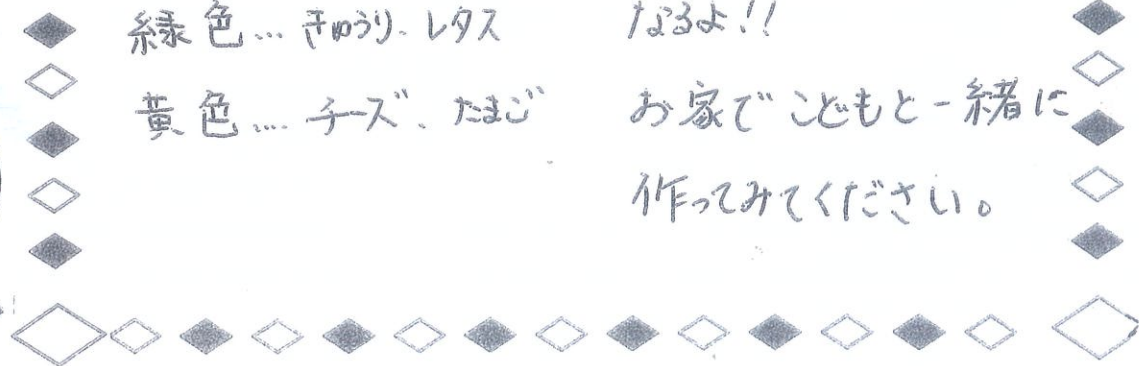 緑色… きゅうり、レタス
黄色… チーズ、たまご
なるよ!!
お家でこどもと一緒に
作ってみてください。